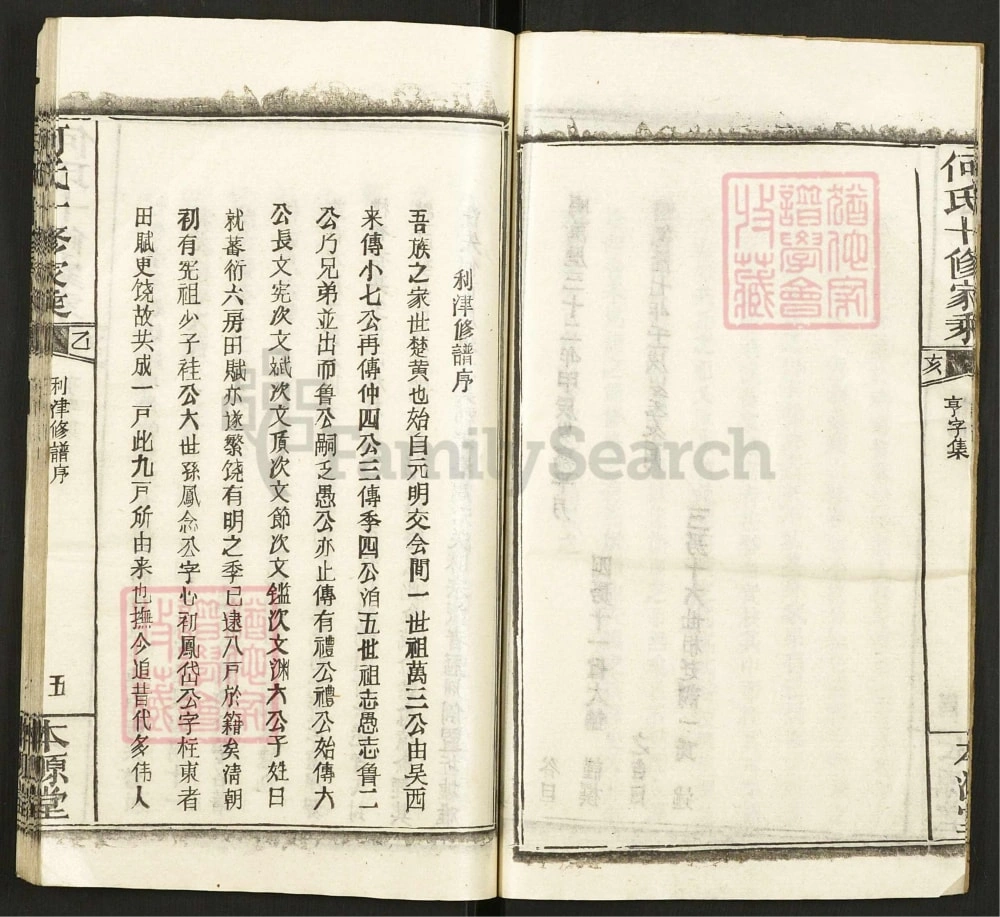 何氏十修家乘
亥
亨字集
本源堂
利津修譜序
吾族之家世楚黄也始自元明交会間一世祖萬三公由吴西
来傳小七公再傳仲四公三傳季四公洎五世祖志愚志魯二
公乃兄弟並出而魯公嗣乏愚公亦止傳有禮公禮公始傳六
公長文宪次文斌次文頂次文節次文鑑次文渊六公子姓日
就蕃衍六房田賦亦遂繁饶有明之季已逮八戸於籍矣清朝
初有宪祖少子袿公六世孫鳳念公字心初鳳岱公字柱東者
田賦更饶故共成一戸此九戸所由来也撫今追昔代多偉人
何氏十修家乘
乙
利津修譜序
五
本源堂
FamilySearch